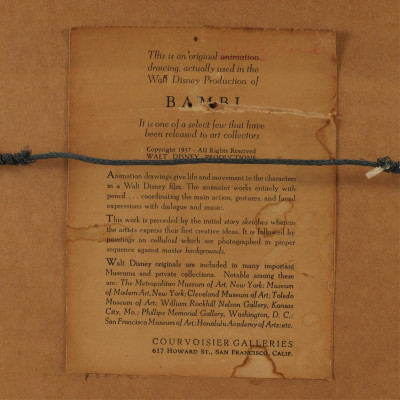 This is an original animation
drawing, actually used in the
Walt Disney Production of
BAMBI
It is one of a select few that have
been released to art collectors
Copyright 1937 - All Rights Reserved
WALT DISNEY PRODUCTIONS
Animation drawings give life and movement to the characters
in a Walt Disney film. The animator works entirely with
pencil . . . coordinating the main action, gestures, and facial
expressions with dialogue and music.
This work is preceded by the initial story sketches wherein
the artists express their first creative ideas. It is followed by
paintings on celluloid which are photographed in proper
sequence against master backgrounds.
Walt Disney originals are included in many important
Museums and private collections. Notable among these
are: The Metropolitan Museum of Art, New York; Museum
of Modern Art, New York; Cleveland Museum of Art; Toledo
Museum of Art; William Rockhill Nelson Gallery, Kansas
City, Mo.; Phillips Memorial Gallery, Washington, D. C.;
San Francisco Museum of Art; Honolulu Academy of Arts; etc.
COURVOISIER GALLERIES
617 HOWARD ST., SAN FRANCISCO, CALIF.